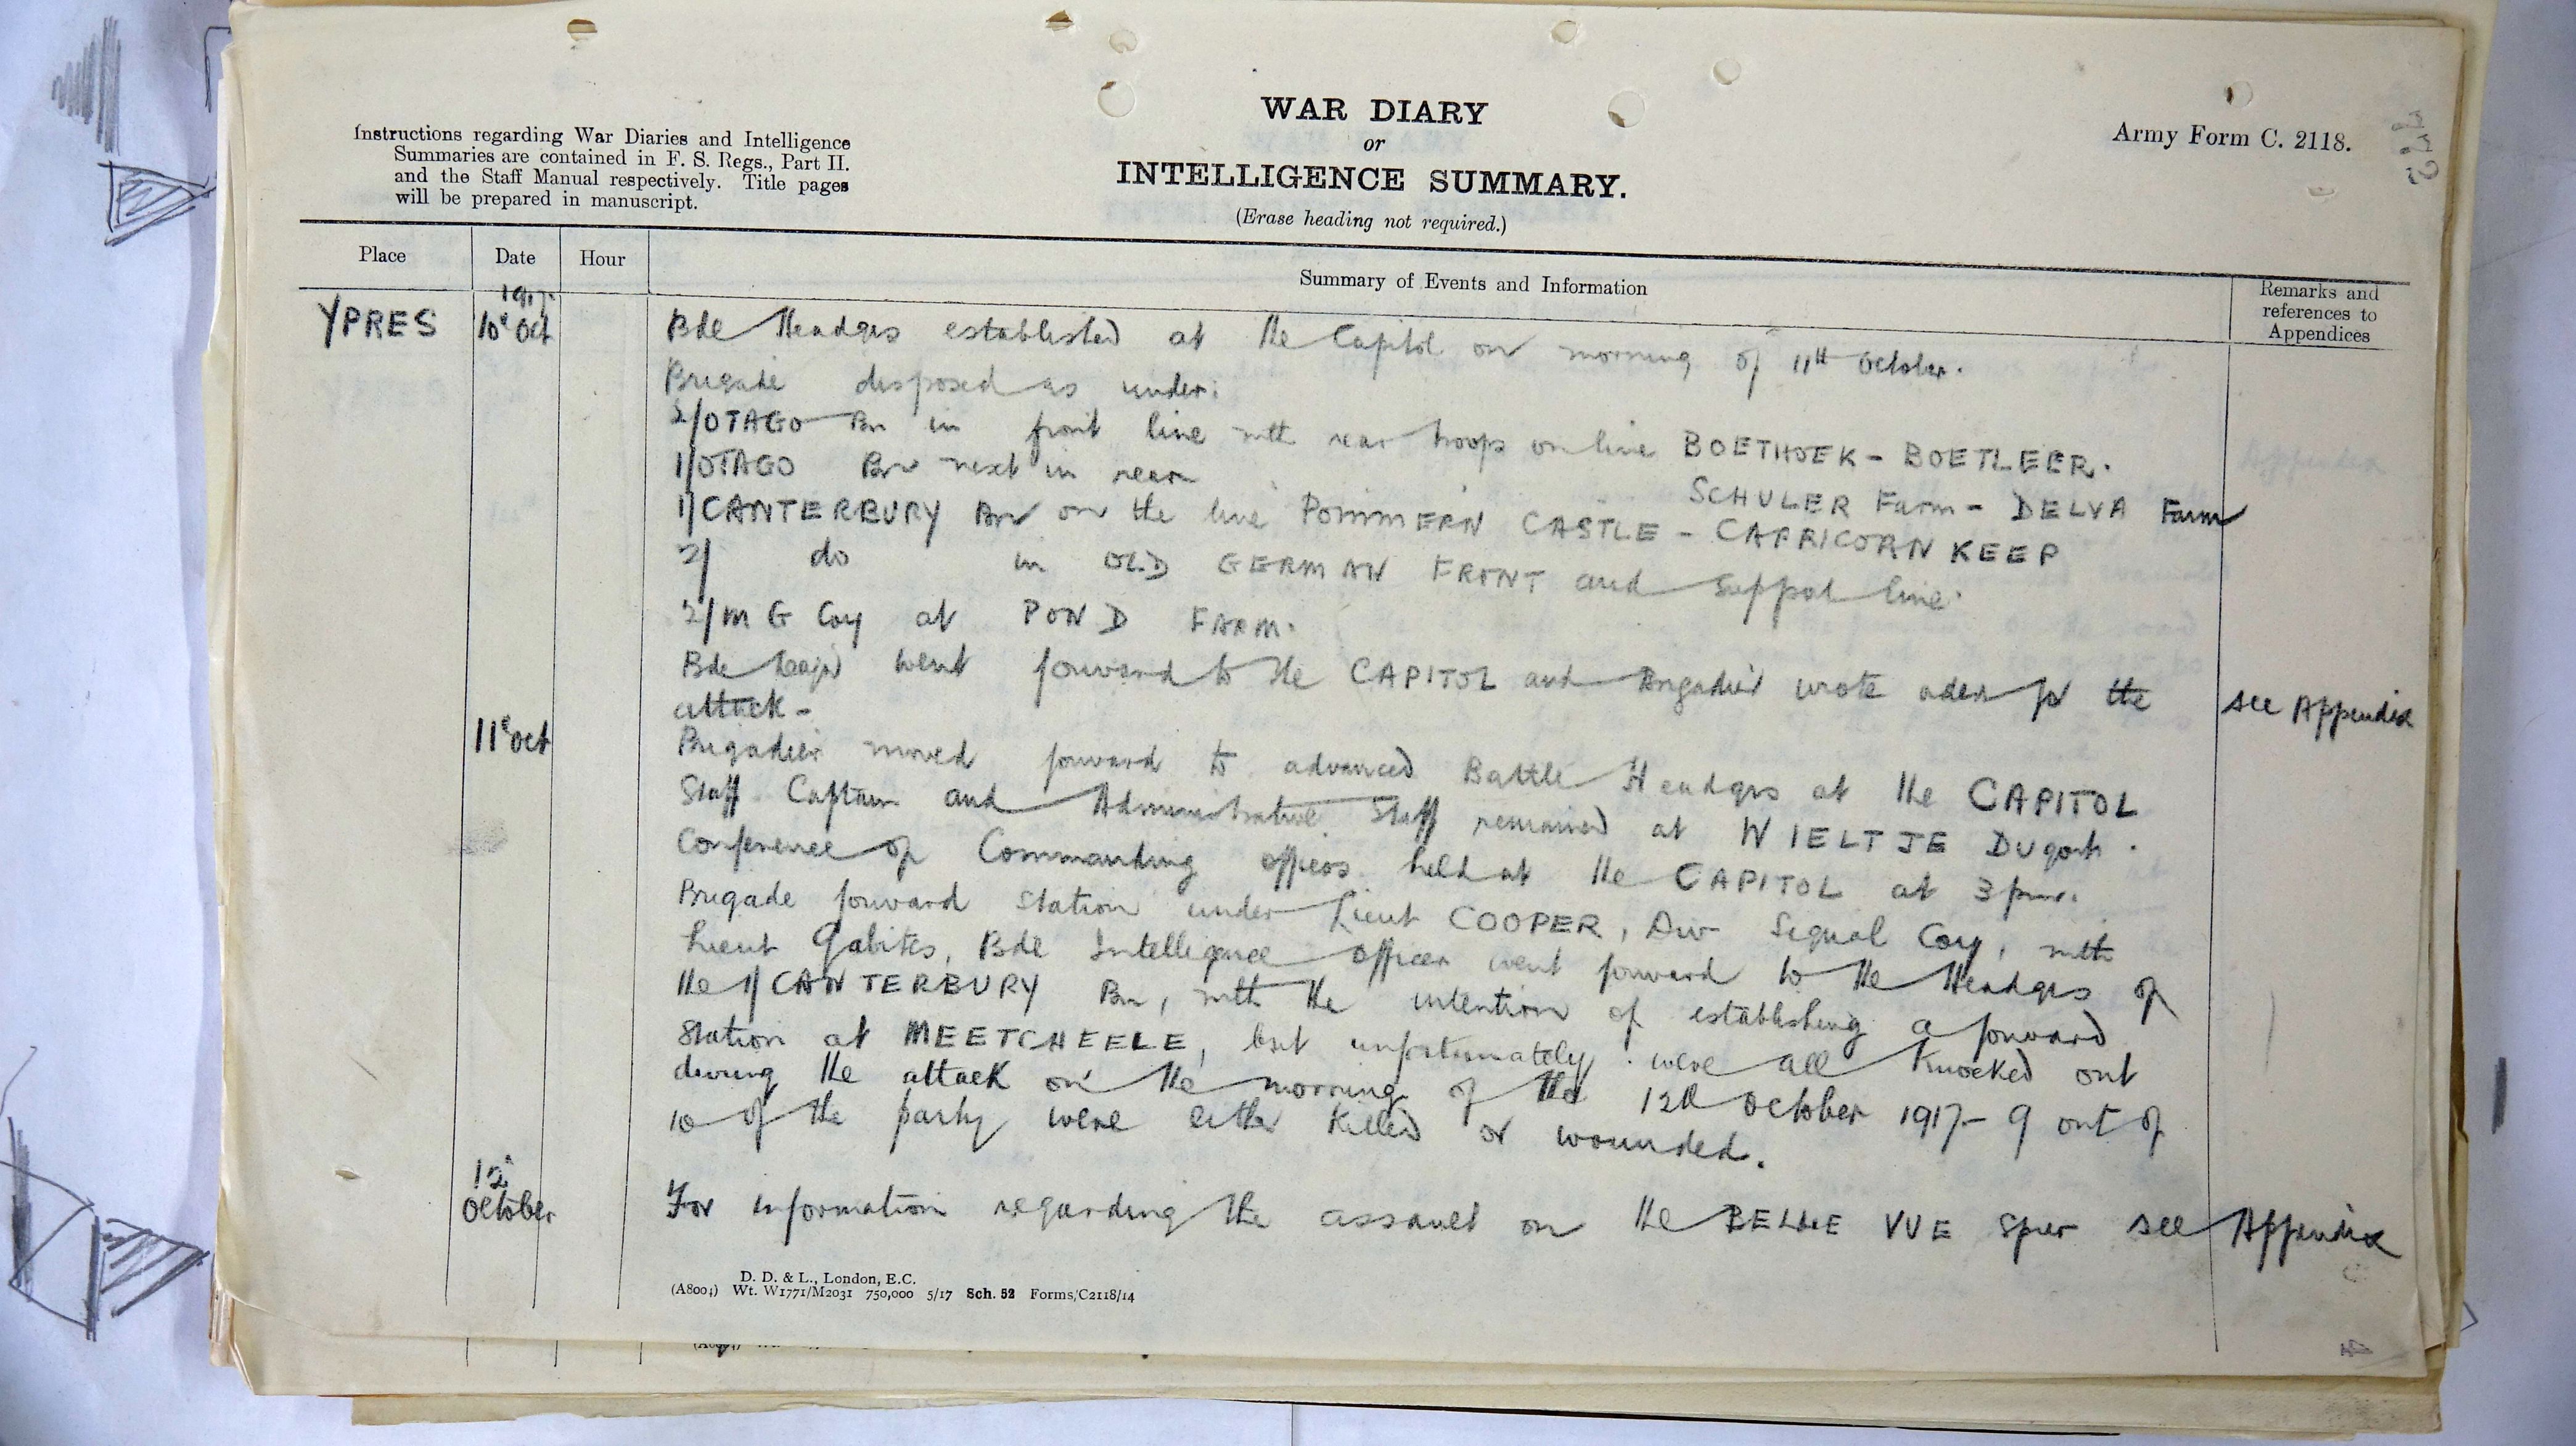 WAR DIARY
or
INTELLIGENCE SUMMARY.
(Erase heading not required.)
Instructions regarding War Diaries and Intelligence
Summaries are contained in F. S. Regs., Part II.
and the Staff Manual respectively. Title pages
will be prepared in manuscript.
Army Form C. 2118.
Place Date Hour Summary of Events and Information Remarks and references to Appendices
1917.
YPRES 10 Oct Bde Headqrs established at the Capitol on morning of 11th October.
Brigade disposed as under:
2/OTAGO Bn in front line with rear troops on line BOETHOEK - BOETLEER.
1/OTAGO Bn next in rear SCHULER Farm - DELVA Farm
1/CANTERBURY Bn on the line POMMERN CASTLE - CAPRICORN KEEP
2/ do in OLD GERMAN FRONT and Support line.
2/M G Coy at POND FARM.
Bde went forward to the CAPITOL and Brigadier wrote order for the see Appendix
attack -
11 Oct Brigadier moved forward to advanced Battle Headqrs at the CAPITOL
Staff Captain and Administrative Staff remained at WIELTJE Dugouts.
Conference of Commanding officers held at the CAPITOL at 3 pm.
Brigade forward Station under Lieut COOPER, Div Signal Coy, with
Lieut Gabites, Bde Intelligence officer went forward to the Headqrs of
the 1/CANTERBURY Bn, with the intention of establishing a forward
Station at MEETCHEELE, but unfortunately were all knocked out
during the attack on the morning of the 12th October 1917 - 9 out of
10 of the party were either killed or wounded.
12 October For information regarding the assault on the BELLE VUE Spur see Appendix
D. D. & L., London, E.C.
(A8004) Wt. W1771/M2031 750,000 5/17 Sch. 52 Forms/C2118/14